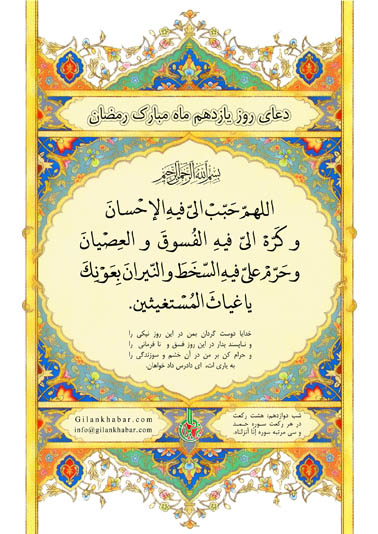 دعای روز یازدهم ماه مبارک رمضان
بسم الله الرحمن الرحیم
اللهمّ حَبّبْ الیّ فیهِ الإحْسانَ
و کَرّهْ الیّ فیهِ الفُسوقَ و العِصْیانَ
وحَرّمْ علیّ فیهِ السّخَطَ والنّیرانَ بِعَوْنِكَ
یا غیاثَ المُسْتغیثین.
خدایا دوست گردان بمن در این روز نیکی را
و ناپسند بدار در این روز فسق و نافرمانی را
و حرام کن بر من در آن خشم و سوزندگی را
به یاری ات، ای دادرس داد خواهان.
Gilankhabar.com
info@gilankhabar.com
شب دوازدهم: هشت رکعت
در هر رکعت سوره حـمـد
و سی مرتبه سوره إنّا أنزلناه.